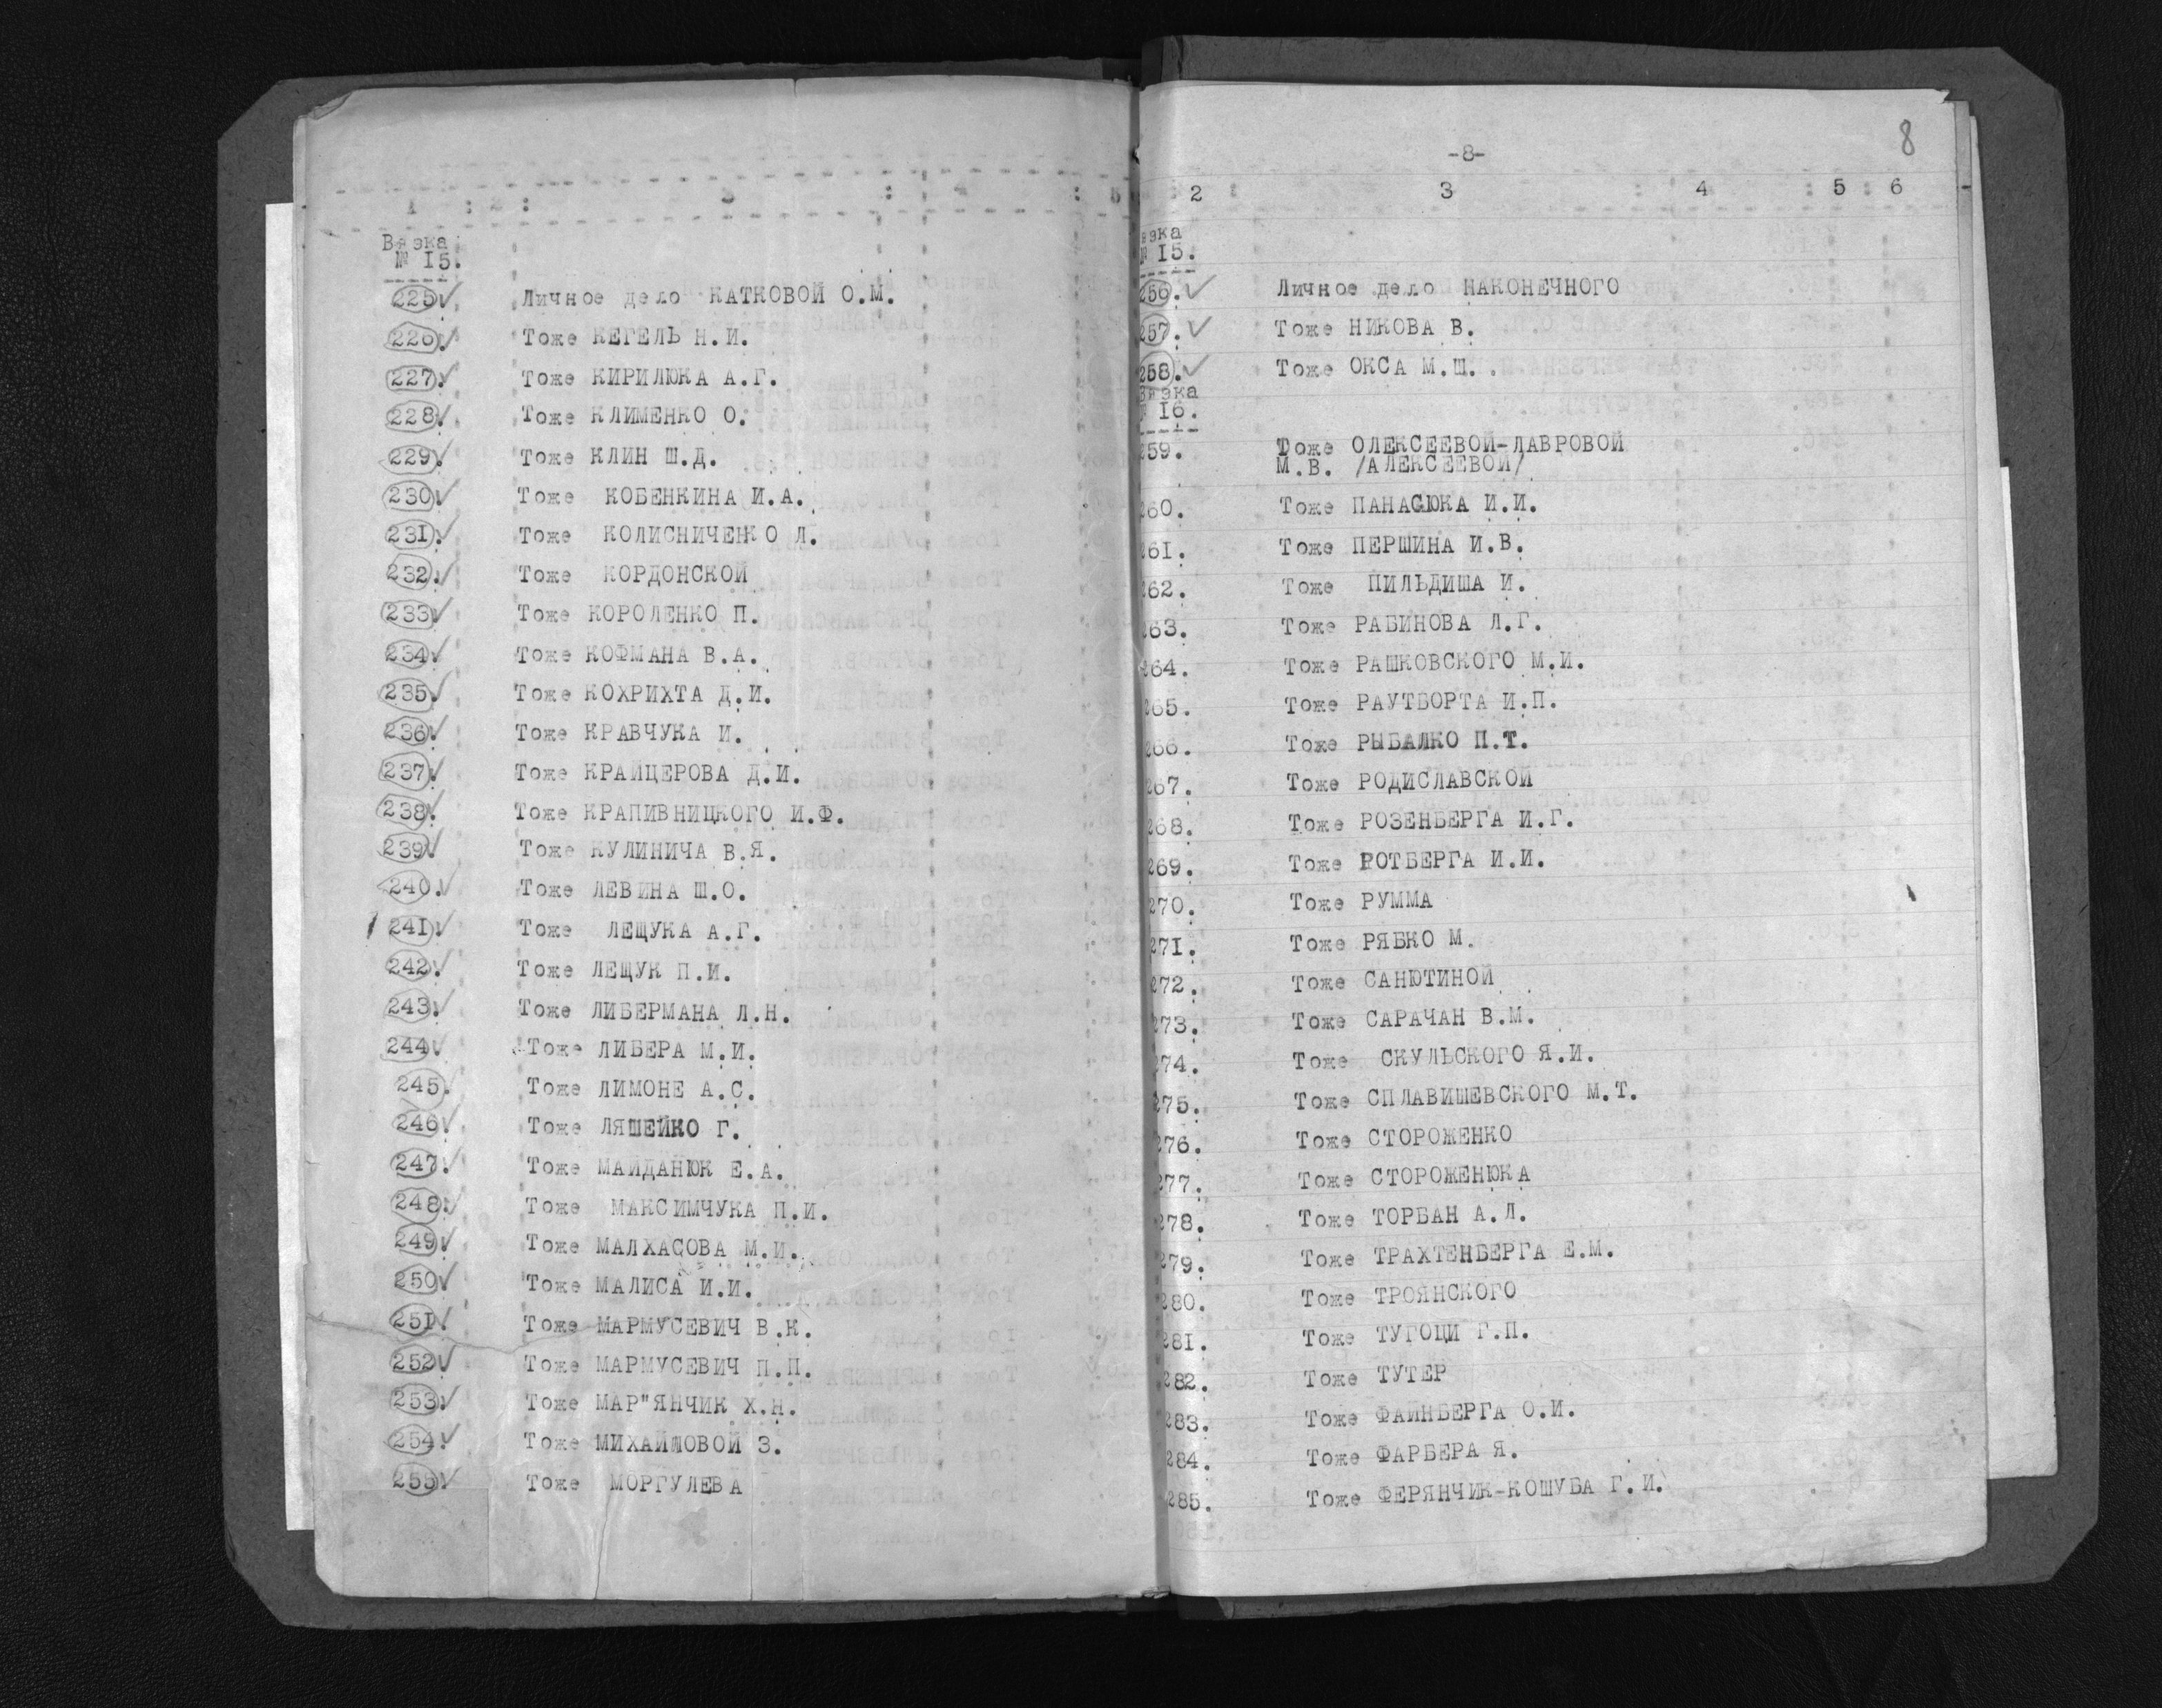 1 : 2 : 3 : 4 : 5
Вязка
№ 15.
225. Личное дело КАТКОВОЙ О.М.
226. Тоже КЕГЕЛЬ Н.И.
227. Тоже КИРИЛЮКА А.Г.
228. Тоже КЛИМЕНКО О.
229. Тоже КЛИН Ш.Д.
230. Тоже КОБЕНКИНА И.А.
231. Тоже КОЛИСНИЧЕНКО Л.
232. Тоже КОРДОНСКОЙ
233. Тоже КОРОЛЕНКО П.
234. Тоже КОФМАНА В.А.
235. Тоже КОХРИХТА Д.И.
236. Тоже КРАВЧУКА И.
237. Тоже КРАЙЦЕРОВА Д.И.
238. Тоже КРАПИВНИЦКОГО И.Ф.
239. Тоже КУЛИНИЧА В.Я.
240. Тоже ЛЕВИНА Ш.О.
241. Тоже ЛЕЩУКА А.Г.
242. Тоже ЛЕЩУК П.И.
243. Тоже ЛИБЕРМАНА Л.Н.
244. Тоже ЛИБЕРА М.И.
245. Тоже ЛИМОНЕ А.С.
246. Тоже ЛЯШЕЙКО Г.
247. Тоже МАЙДАНЮК Е.А.
248. Тоже МАКСИМЧУКА П.И.
249. Тоже МАЛХАСОВА М.И.
250. Тоже МАЛИСА И.И.
251. Тоже МАРМУСЕВИЧ В.К.
252. Тоже МАРМУСЕВИЧ П.П.
253. Тоже МАР"ЯНЧИК Х.Н.
254. Тоже МИХАЙЛОВОЙ З.
255. Тоже МОРГУЛЕВА
8
-8-
2 : 3 : 4 : 5 : 6
язка
№ 15.
256. Личное дело НАКОНЕЧНОГО
257. Тоже НИКОВА В.
258. Тоже ОКСА М.Ш.
Вязка
№ 16.
259. Тоже ОЛЕКСЕЕВОЙ-ЛАВРОВОЙ
М.В. /АЛЕКСЕЕВОЙ/
260. Тоже ПАНАСЮКА И.И.
261. Тоже ПЕРШИНА И.В.
262. Тоже ПИЛЬДИША И.
263. Тоже РАБИНОВА Л.Г.
264. Тоже РАШКОВСКОГО М.И.
265. Тоже РАУТБОРТА И.П.
266. Тоже РЫБАЛКО П.Т.
267. Тоже РОДИСЛАВСКОЙ
268. Тоже РОЗЕНБЕРГА И.Г.
269. Тоже РОТБЕРГА И.И.
270. Тоже РУММА
271. Тоже РЯБКО М.
272. Тоже САНЮТИНОЙ
273. Тоже САРАЧАН В.М.
274. Тоже СКУЛЬСКОГО Я.И.
275. Тоже СПЛАВИШЕВСКОГО М.Т.
276. Тоже СТОРОЖЕНКО
277. Тоже СТОРОЖЕНЮКА
278. Тоже ТОРБАН А.Л.
279. Тоже ТРАХТЕНБЕРГА Е.М.
280. Тоже ТРОЯНСКОГО
281. Тоже ТУГОЦИ Г.П.
282. Тоже ТУТЕР
283. Тоже ФАЙНБЕРГА О.И.
284. Тоже ФАРБЕРА Я.
285. Тоже ФЕРЯНЧИК-КОШУБА Г.И.